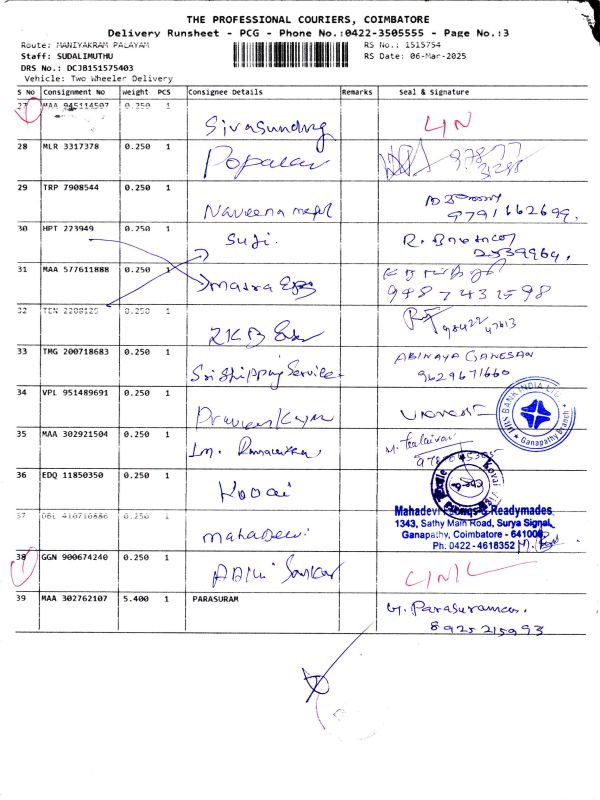 THE PROFESSIONAL COURIERS, COIMBATORE
Delivery Runsheet - PCG - Phone No.:0422-3505555 - Page No.:3
Route: MANIYAKRAM PALAYAM RS No.: 1515754
Staff: SUDALIMUTHU RS Date: 06-Mar-2025
DRS No.: DCJB151575403
Vehicle: Two Wheeler Delivery
S No Consignment No Weight PCS Consignee Details Remarks Seal & Signature
27 MAA 945114507 0.250 1
Sivasundry
28 MLR 3317378 0.250 1
Popular 97877
31298
29 TRP 7908544 0.250 1
Naveena 9791662699.
30 HPT 223949 0.250 1
Suji. R.
2539964.
31 MAA 577611888 0.250 1
Masra 9487431598
32 TEN 2208125 0.250 1
ZKB 98422 47613
33 TMG 200718683 0.250 1 ABINAYA GANESAN
Sri Shipping Service 9629671660
34 VPL 951489691 0.250 1
Praveen Kumar
35 MAA 302921504 0.250 1
Im.
36 EDQ 11850350 0.250 1
Kovai
37 DBL 410710886 0.250 1
Mahadevi
Ganapathy Branch
Mahadevi Readymades
1343, Sathy Main Road, Surya Signal,
Ganapathy, Coimbatore - 641006
Ph: 0422 - 4618352
38 GGN 900674240 0.250 1
Sankar
39 MAA 302762107 5.400 1 PARASURAM
G. Parasuraman
8925215993